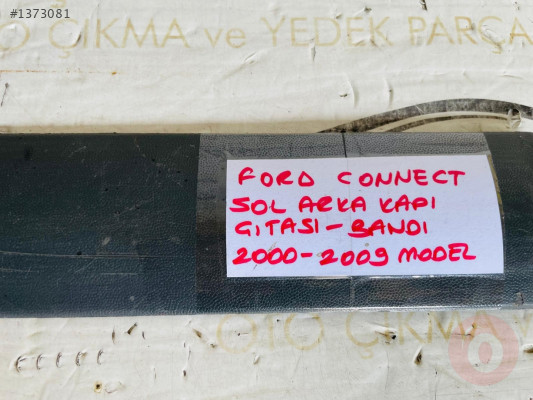 #1373081
OTO ÇIKMA ve YEDEK PARÇA
FORD CONNECT
SOL ARKA KAPI
GITASI-BANDI
2000-2009 MODEL
OTO ÇIKMA